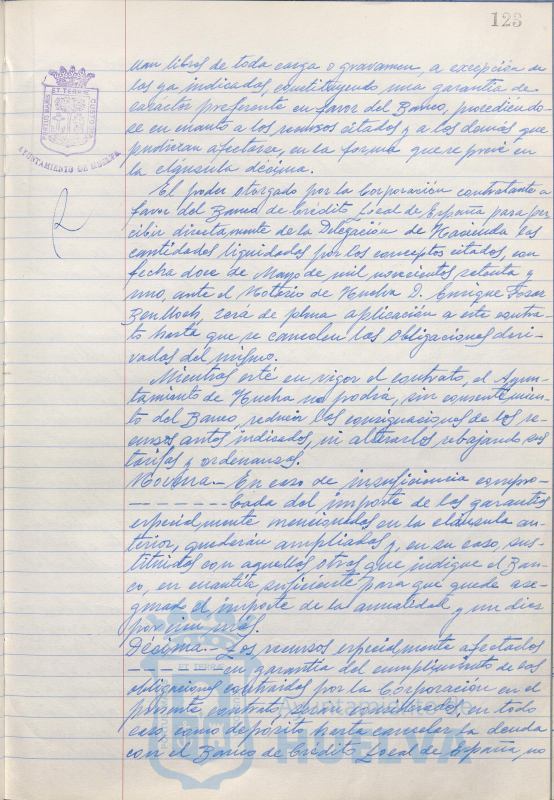 123
van libres de toda carga o gravamen, a excepción de
los ya indicados, constituyendo una garantía de
carácter preferente en favor del Banco, procediendo-
se en cuanto a los recursos citados y a los demás que
pudieran afectarse, en la forma que se prevé en
la cláusula décima.
El poder otorgado por la Corporación contratante a
favor del Banco de Crédito Local de España para per-
cibir directamente de la Delegación de Hacienda las
cantidades liquidadas por los conceptos citados, con
fecha doce de Mayo de mil novecientos setenta y
uno, ante el Notario de Huelva D. Enrique
será de plena aplicación a este contra-
to hasta que se cancelen las obligaciones deri-
vadas del mismo.
Mientras esté en vigor el contrato, el Ayun-
tamiento de Huelva no podrá, sin consentimien-
to del Banco, reducir las consignaciones de los re-
cursos antes indicados, ni alterarlos rebajando sus
tarifas y ordenanzas.
Novena.- En caso de insuficiencia compro-
- - - - - - - bada del importe de las garantías
especialmente mencionadas en la cláusula an-
terior, quedarán ampliadas y, en su caso, sus-
tituidas con aquellas otras que indique el Ban-
co, en cuantía suficiente para que quede ase-
gurado el importe de la anualidad y un diez
por cien más.
Décima.- Los recursos especialmente afectados
- - - - en garantía del cumplimiento de las
obligaciones contraídas por la Corporación en el
presente contrato, serán considerados, en todo
caso, como depósito hasta cancelar la deuda
con el Banco de Crédito Local de España, no
AYUNTAMIENTO DE HUELVA
PORTUS MARIS ET TERRE CUSTODIA
Ayuntamiento de
HUELVA